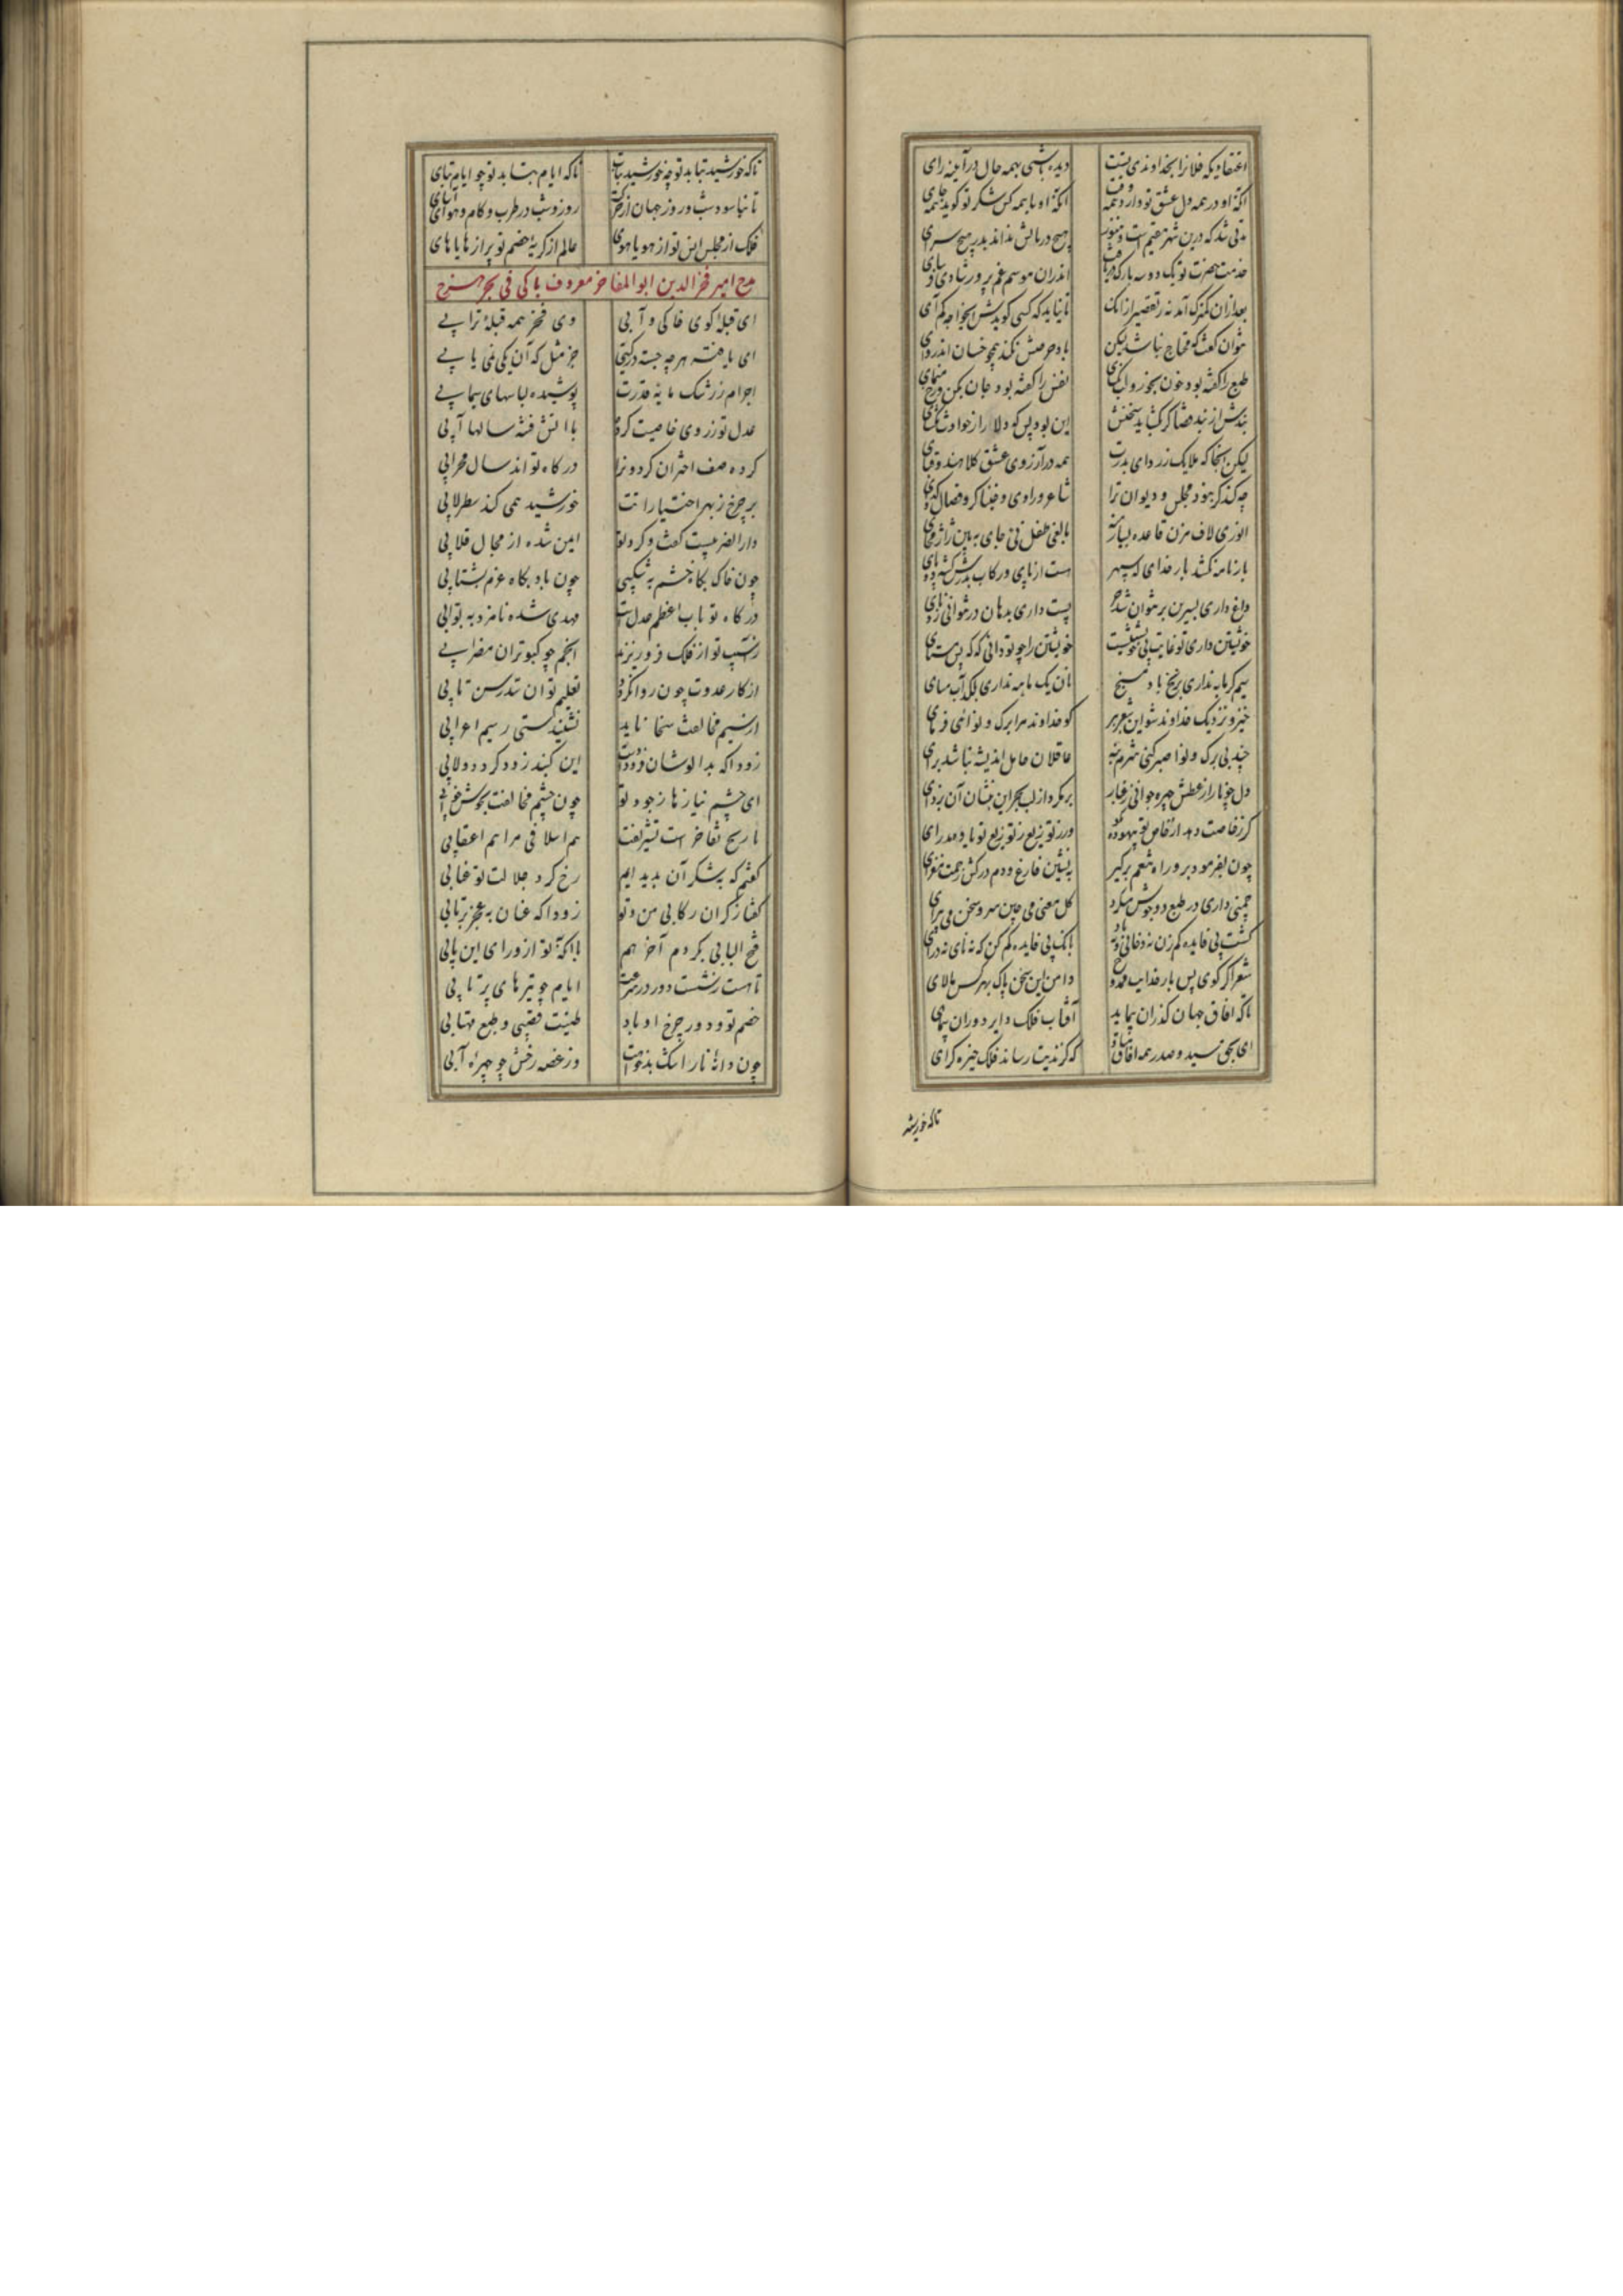 اعتقادیکه فلانرا بخداوندی تست دیده باشی بهمه حال در آینه رای
آنکه او در همه دل عشق تو دارد همه وقت آنکه او با همه کس شکر تو گوید همه جای
مدتی شد که درین شهر مقیم است و هنوز هیچ در بالش نداند بدر هیچ سرای
خدمت حضرت تو یک دو سه بار که دریافت اندران موسم غم پرور شادی
بعد از آن کمترک آمد نه ز تقصیر از آنک تا نیاید که کسی گویدش ایخواجه کم آی
نتوان گفت که محتاج نباشد لیکن باد حرصش نکند همچو خسان اندروای
طبع را گفته بود خون بخور و لب نفس را گفته بود جان بکن و رخ منمای
بندش از بند قضا گر بگشاید سخنش این بود پس که دلا راز حوادث مگشای
لیکن آنجا که ملایک ز ردای بدرت همه در آرزوی عشق کلاهند و قبای
چه کند گر نبود مجلس و دیوان ترا شاعر و راوی و خنیاگر و فصال گدای
انوری لاف مزن قاعده بسیار منه بالغی طفل نئی جای به بین ژاژ مخای
بارنامه نکشد بار خدای که سپهر هست از پای در رکاب بدرش
داغ داری بسرین بر نتوان شد پست داری بدهان در نتوانی زد نای
خویشتن داری تو غایت بی خویشتنیست خویشتن را چو تو دانی که که پس مستای
سیم گرمابه نداری بزنخ باد مسنج نان یک ماهه نداری بلگد آب مسای
خیز و نزدیک خداوند شو این شعر ببر گو خداوند مرا برگ و نوائی فرمای
چند بی برگ و نوا صبر کنی شرم بنه عاقلان حامل اندیشه نباشند برای
چون بفرمود برو راه تنعم برگیر بنشین فارغ و دم درکش زحمت مفزای
چمنی داری در طبع و در جوش مگرد گل معنی می چین سرو سخن می پیرای
بانگ بی فایده کم کن که نه نای نه درای
شعر اگر گوی پس بار خدایت ممدوح دامن این سخن پاک بهر کس مالای
تا که آفاق جهان گذران پیماید آفتاب فلک دایر دوران پیمای
ای بحق سید و صدر همه آفاق مباد که گزندیت رساند فلک خیره گرای
تا که خورشید
تا که خورشید بتابد تو چو خورشید بتاب تا که ایام بتابد تو چو ایام بپای
تا نیاسود شب و روز جهان از حرکت روز و شب در طرب و کام و هوا
فلک از مجلس انس تو از هویاهوی عالم از گریه خصم تو پر از هایاهای
مدح امیر فخرالدین ابوالمفاخر معروف بآبی فی بحر هزج
ای قبله کوی خاکی و آبی وی فخر همه قبله ترابی
ای یافته هرچه جسته در گیتی جز مثل که آن یکی نمی یابی
اجرام ز رشک پایه قدرت پوشیده لباسهای سیمابی
عدل تو ز روی خاصیت کرده با آتش فتنه سالها آبی
کرده صف اختران گردونرا درگاه تو اند سال محرابی
بر چرخ ز بهر اختیارانت خورشید همی کند سطرلابی
دارالضربیست گفت و گرد تو ایمن شده از مجال قلابی
چون خاک بگاه خشم بشکیبی چون باد بگاه عزم بشتابی
درگاه تو باب اعظم عدل است مهدی شده نامزد به بوابی
ز آسیب تو از فلک فرو ریزند انجم چو کبوتران مضرابی
از کار عدوت چون روا گردد تعلیم توان ستد رسن تابی
از سیم مخالفت سخا ناید نشنید کسی ز سیم اعرابی
زودا که بدالوشان فرو این گنبد زود گرد دولابی
ای چشم نیازها ز جود تو چون چشم مخالفت بخوش خوابی
تاریخ تفاخر است تشریفت هم اسلافی مرا هم اعقابی
گفتم که بشکر آن پدید آیم رخ کرد جلالت تو عنابی
گفتا ز گران رکابی من و تو زودا که عنان به عجز برتابی
فتح البابی بکردم آخر هم با آنکه تو از ورای این بابی
تا هست نشست دور در سرعت ایام چو تیرهای پرتابی
خصم تو و دور چرخ او باد طینت قصبی و طبع مهتابی
چون دانه نار اشک بدخواهت وز غصه رخش چو چهره آبی